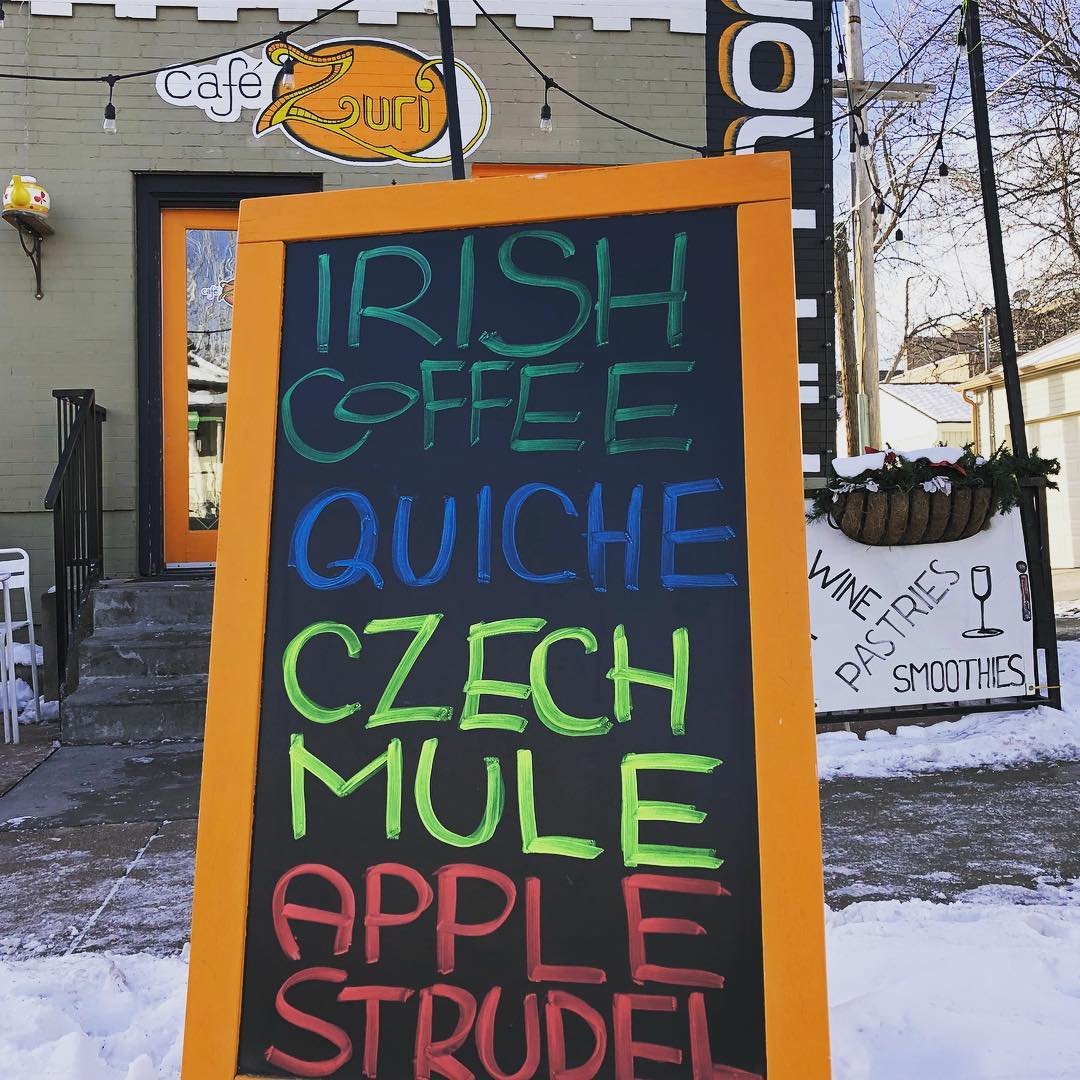 café Zuri
IRISH
COFFEE
QUICHE
CZECH
MULE
APPLE
STRUDEL
WINE
PASTRIES
SMOOTHIES